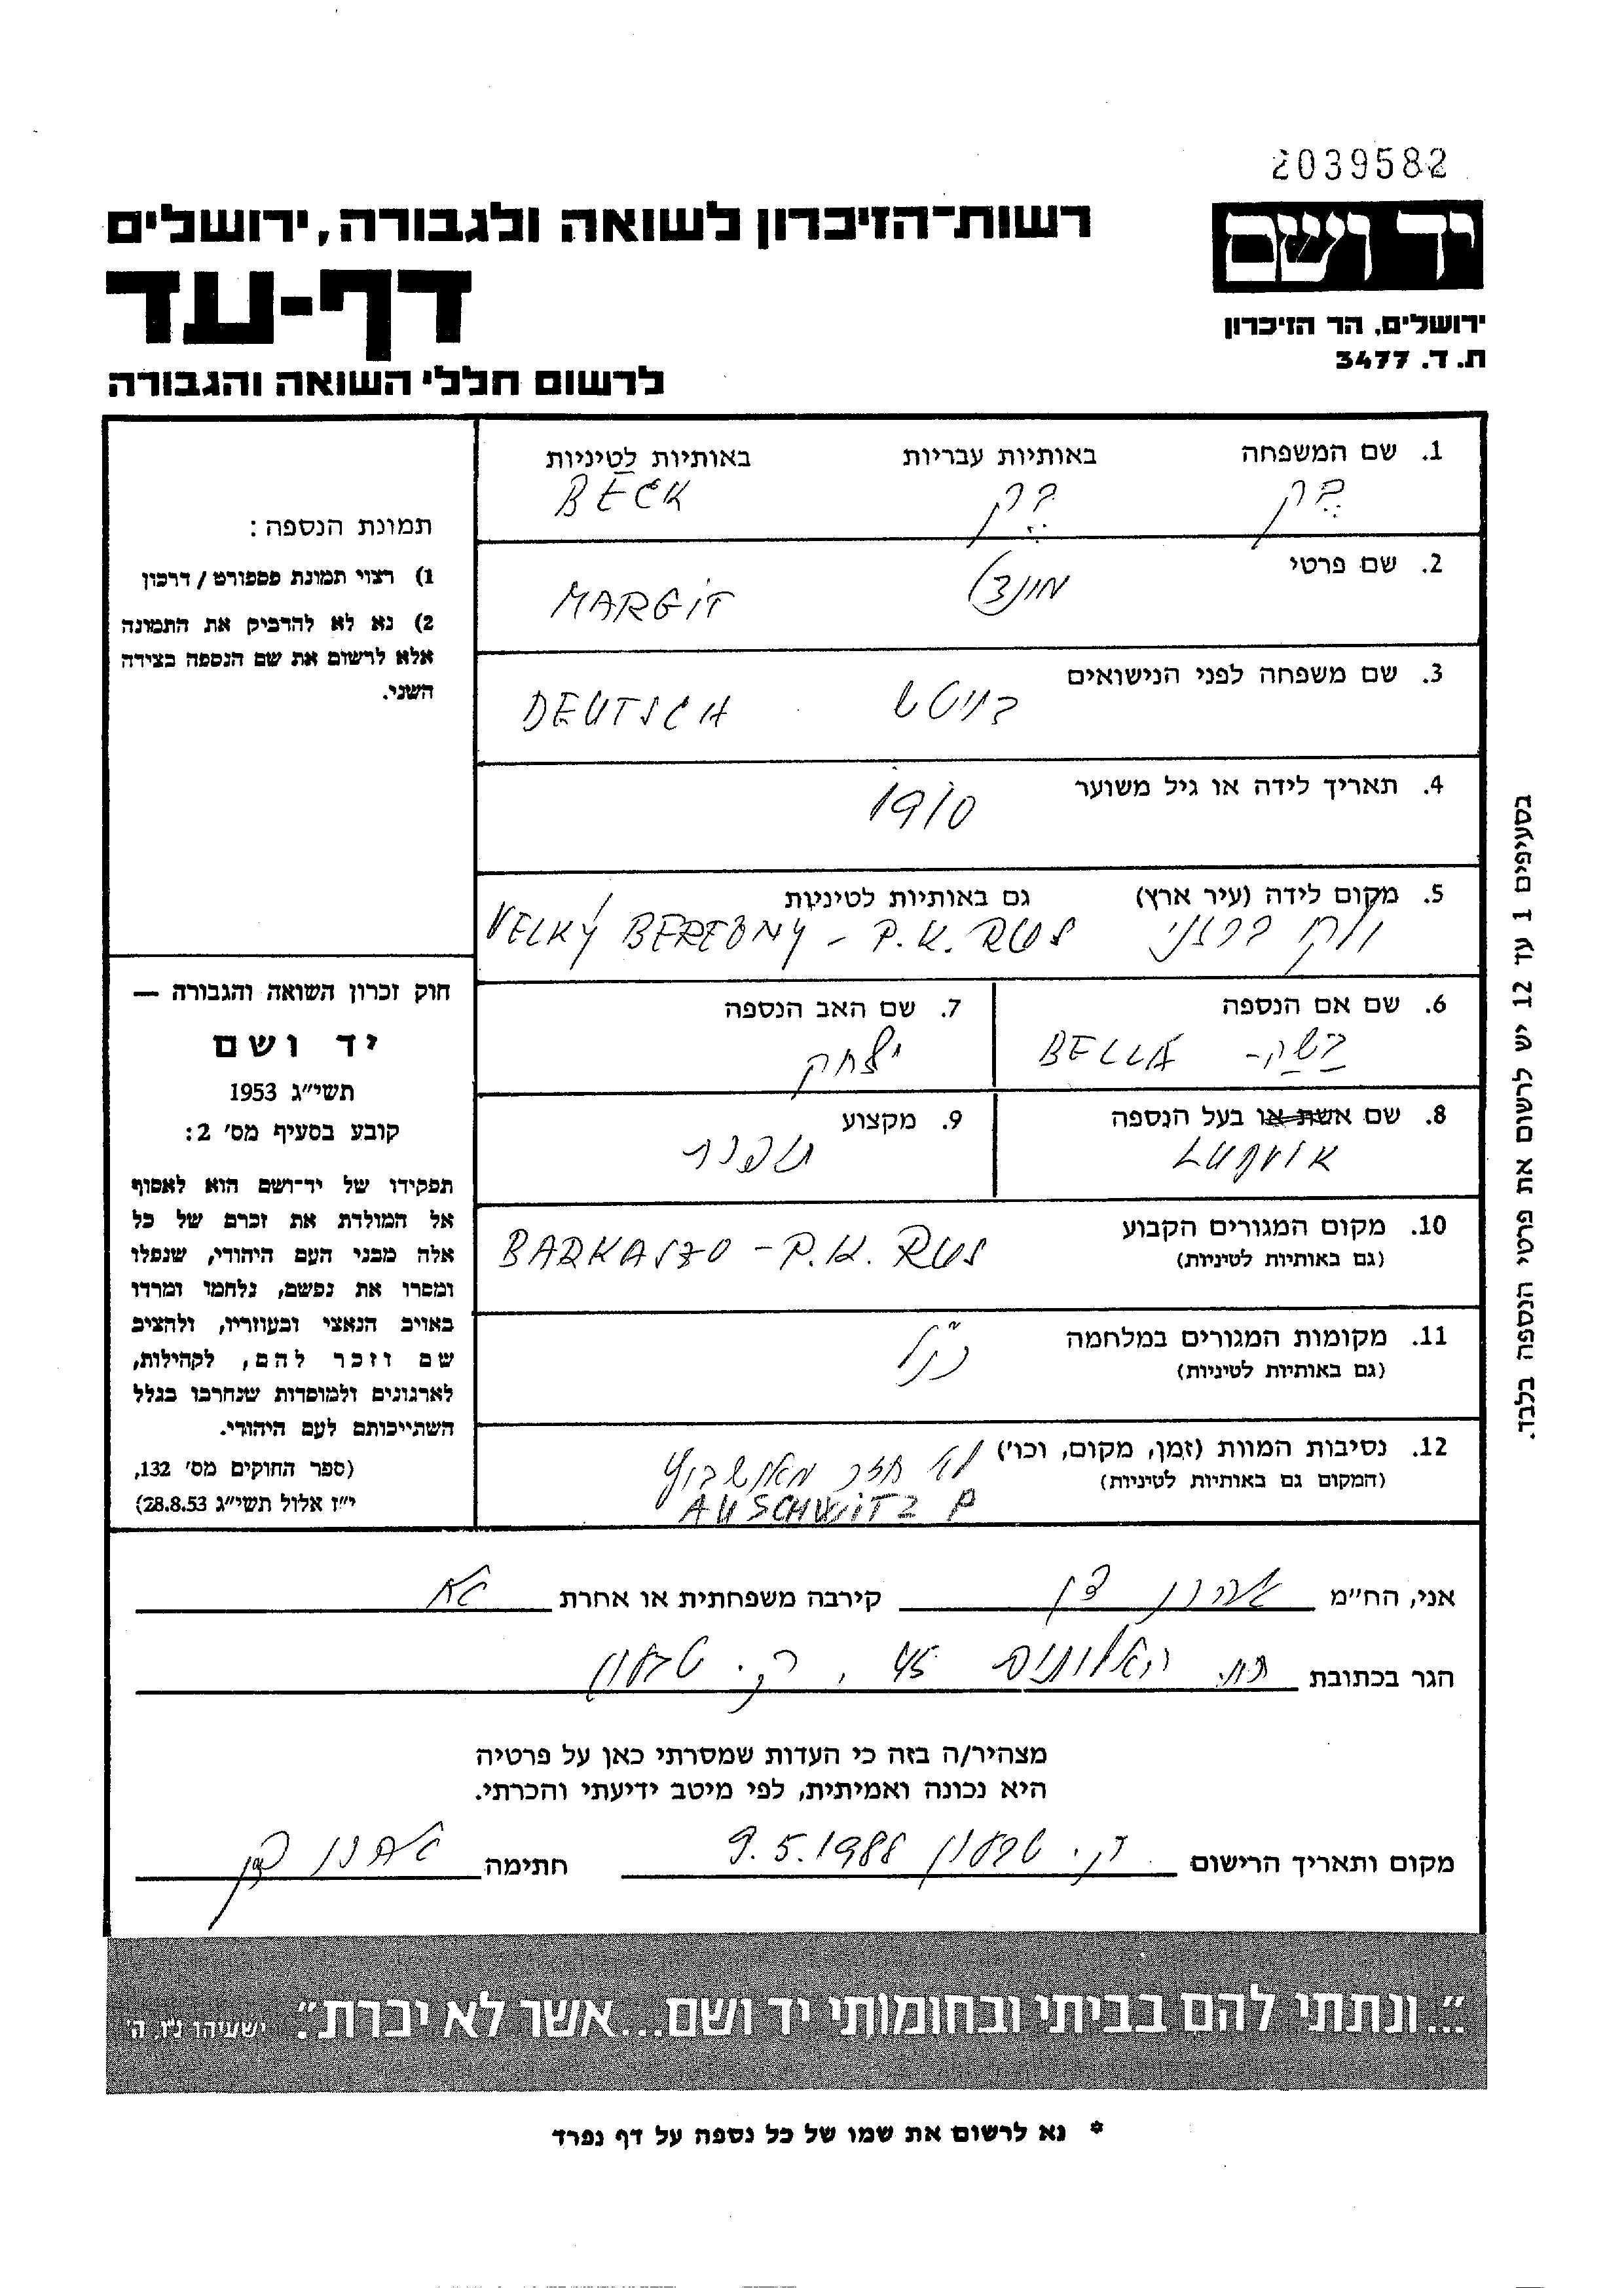 2039582
יד ושם
רשות-הזיכרון לשואה ולגבורה, ירושלים
דף-עד
ירושלים, הר הזיכרון
ת. ד. 3477
לרשום חללי השואה והגבורה
1. שם המשפחה באותיות עבריות באותיות לטיניות
בק בק BECK
2. שם פרטי
MARGIT
3. שם משפחה לפני הנישואים
דויטש DEUTSCH
4. תאריך לידה או גיל משוער
1910
5. מקום לידה (עיר ארץ) גם באותיות לטיניות
VELKÝ BEREZNY - P.K. RUS
6. שם אם הנספה
BELLA
7. שם האב הנספה
יצחק
8. שם אשת או בעל הנספה
LUDVIK
9. מקצוע
תופרת
10. מקום המגורים הקבוע
(גם באותיות לטיניות)
BARKASZO - P.K. RUS
11. מקומות המגורים במלחמה
(גם באותיות לטיניות)
כנ"ל
12. נסיבות המוות (זמן, מקום, וכו') לא חזר מאושביץ
(המקום גם באותיות לטיניות)
AUSCHWITZ P
תמונת הנספה:
1) רצוי תמונת פספורט / דרכון
2) נא לא להדביק את התמונה
אלא לרשום את שם הנספה בצידה
השני.
חוק זכרון השואה והגבורה —
יד ושם
תשי"ג 1953
קובע בסעיף מס' 2:
תפקידו של יד-ושם הוא לאסוף
אל המולדת את זכרם של כל
אלה מבני העם היהודי, שנפלו
ומסרו את נפשם, נלחמו ומרדו
באויב הנאצי ובעוזריו, ולהציב
שם וזכר להם, לקהילות,
לארגונים ולמוסדות שנחרבו בגלל
השתייכותם לעם היהודי.
(ספר החוקים מס' 132,
י"ז אלול תשי"ג 28.8.53)
בסעיפים 1 עד 12 יש לרשום את פרטי הנספה בלבד.
אני, הח"מ קירבה משפחתית או אחרת
הגר בכתובת האלונים 45, ק. טבעון
מצהיר/ה בזה כי העדות שמסרתי כאן על פרטיה
היא נכונה ואמיתית, לפי מיטב ידיעתי והכרתי.
מקום ותאריך הרישום ק. טבעון 9.5.1988 חתימה
"...ונתתי להם בביתי ובחומותי יד ושם...אשר לא יכרת". ישעיהו נ"ו, ה'
* נא לרשום את שמו של כל נספה על דף נפרד